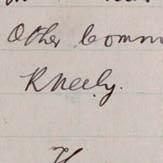 Other Comm
Kneely.